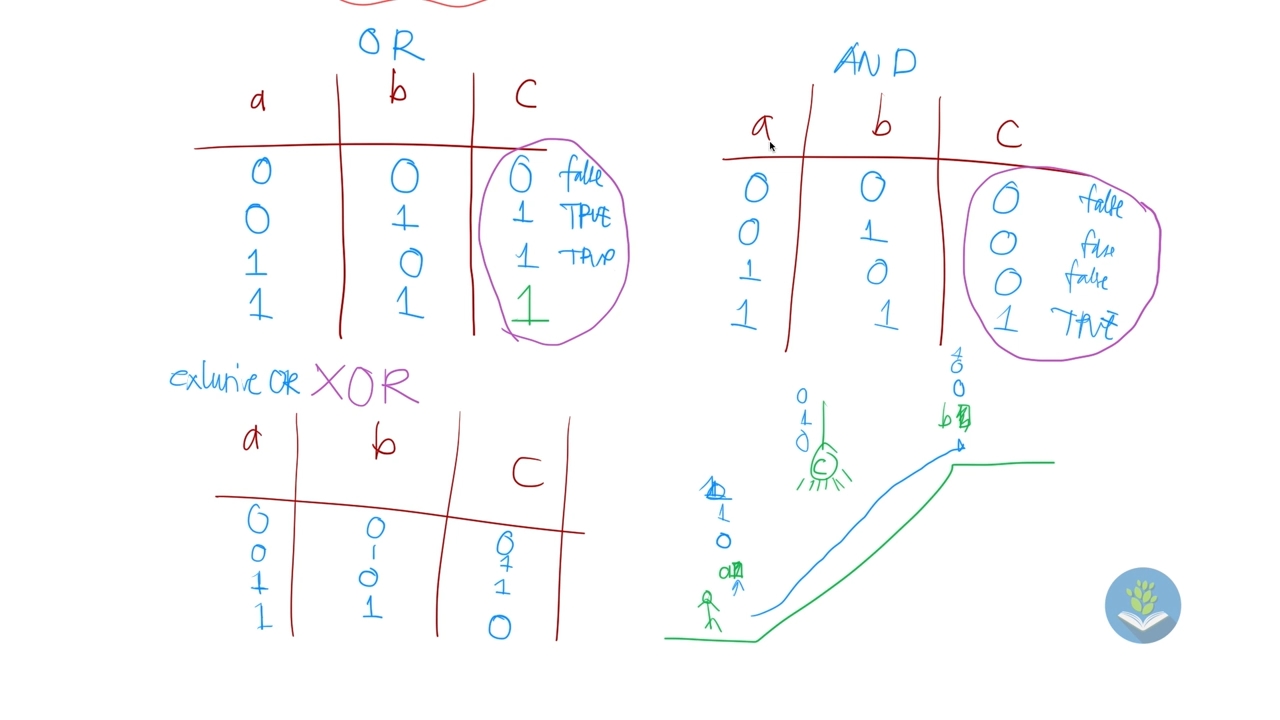 OR
a b C
0 0 0 false
0 1 1 TRUE
1 0 1 TRUE
1 1 1
AND
a b C
0 0 0 false
0 1 0 false
1 0 0 false
1 1 1 TRUE
exlurive OR XOR
a b C
0 0 0
0 1 1
1 0 1
1 1 0
0
1
0
C
0
0
b
1
0
a